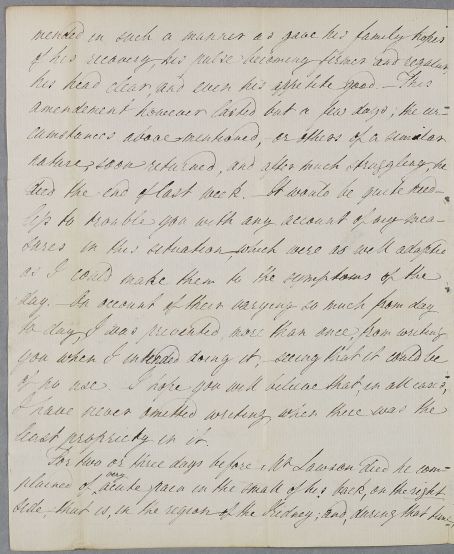 mended in such a manner as gave his family hopes
of his recovery, his pulse becoming firmer and regular,
his head clear, and even his appetite good. — This
amendment however lasted but a few days; the cir-
cumstances above mentioned, or others of a similar
nature, soon returned, and after much struggling, he
died the end of last week. — It would be quite need-
less to trouble you with any account of my mea-
sures in this situation, which were as well adapted
as I could make them to the symptoms of the
day. — On account of their varying so much from day
to day, I was prevented, more than once, from writing
you when I intended doing it, seeing that it could be
of no use. I hope you will believe that, in all cases,
I have never omitted writing, when there was the
least propriety in it.
For two or three days before Mr Lawson died he com-
plained of very acute pain in the small of his back, on the right
side, that is, in the region of the kidney; and, during that time,